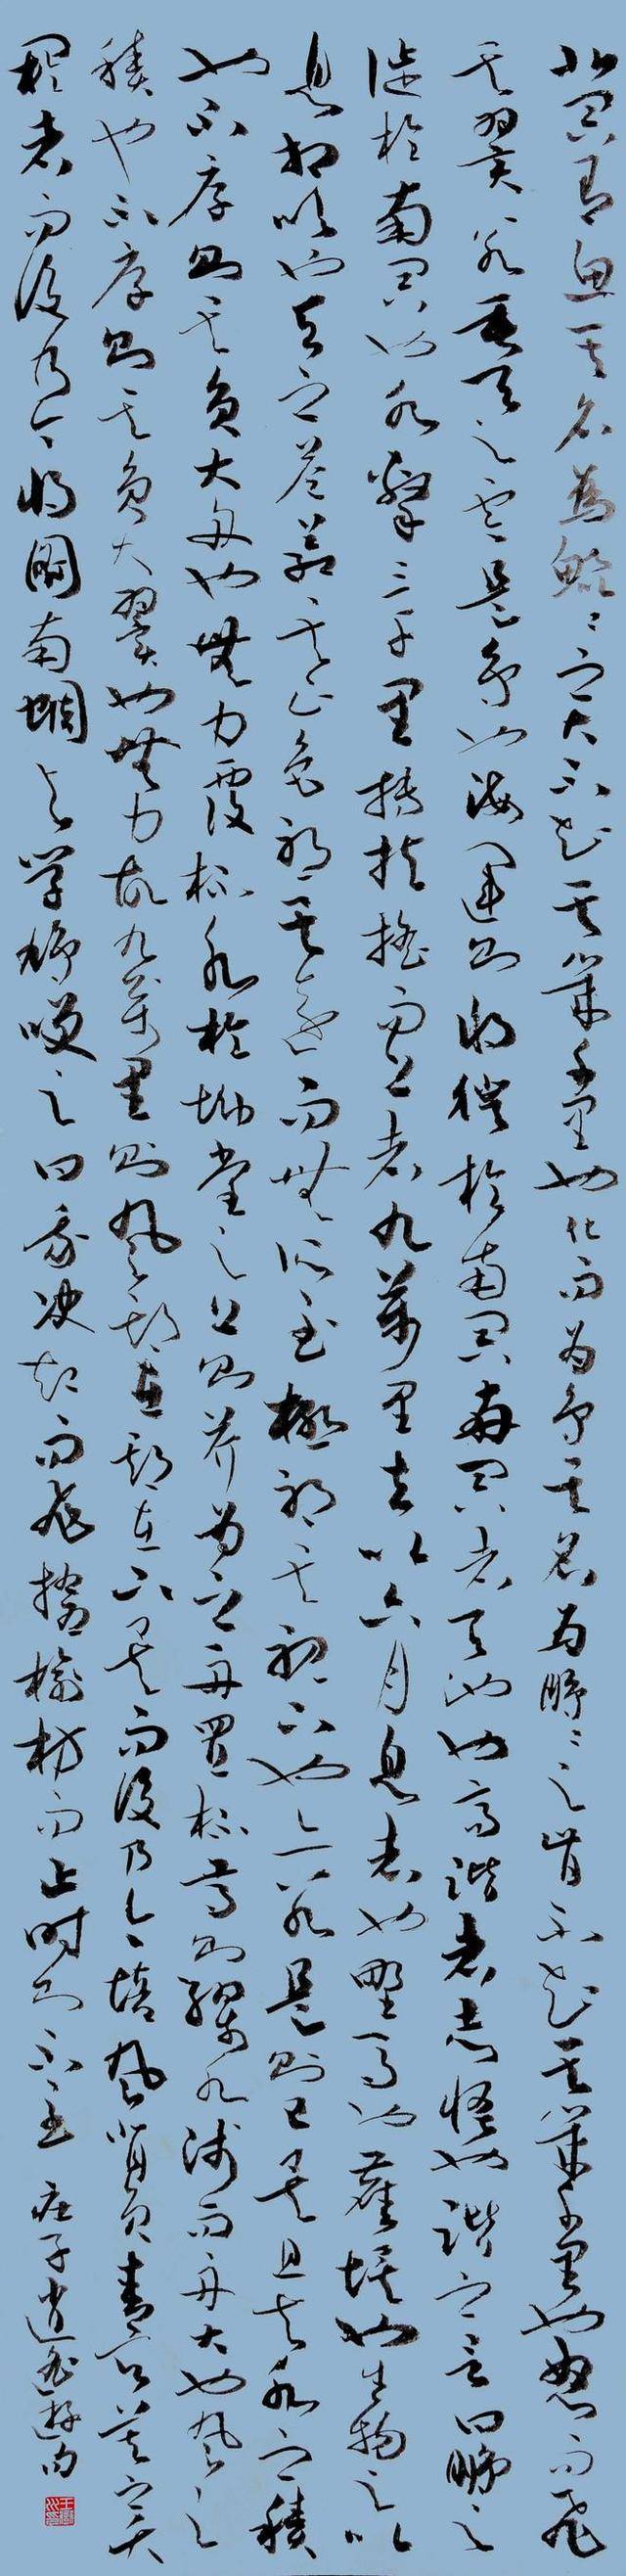 北冥有魚其名為鯤鯤之大不知其幾千里也化而為鳥其名為鵬鵬之背不知其幾千里也怒而飛
其翼若垂天之雲是鳥也海運則將徙於南冥南冥者天池也齊諧者志怪也諧之言曰鵬之
徙於南冥也水擊三千里摶扶搖而上者九萬里去以六月息者也野馬也塵埃也生物之以
息相吹也天之蒼蒼其正色邪其遠而無所至極邪其視下也亦若是則已矣且夫水之積
也不厚則其負大舟也無力覆杯水於坳堂之上則芥為之舟置杯焉則膠水淺而舟大也風之
積也不厚則其負大翼也無力故九萬里則風斯在斯在下矣而後乃今培風背負青天莫之夭
閼者而後乃今將圖南蜩與學鳩笑之曰我決起而飛搶榆枋而止時則不至 莊子逍遙遊